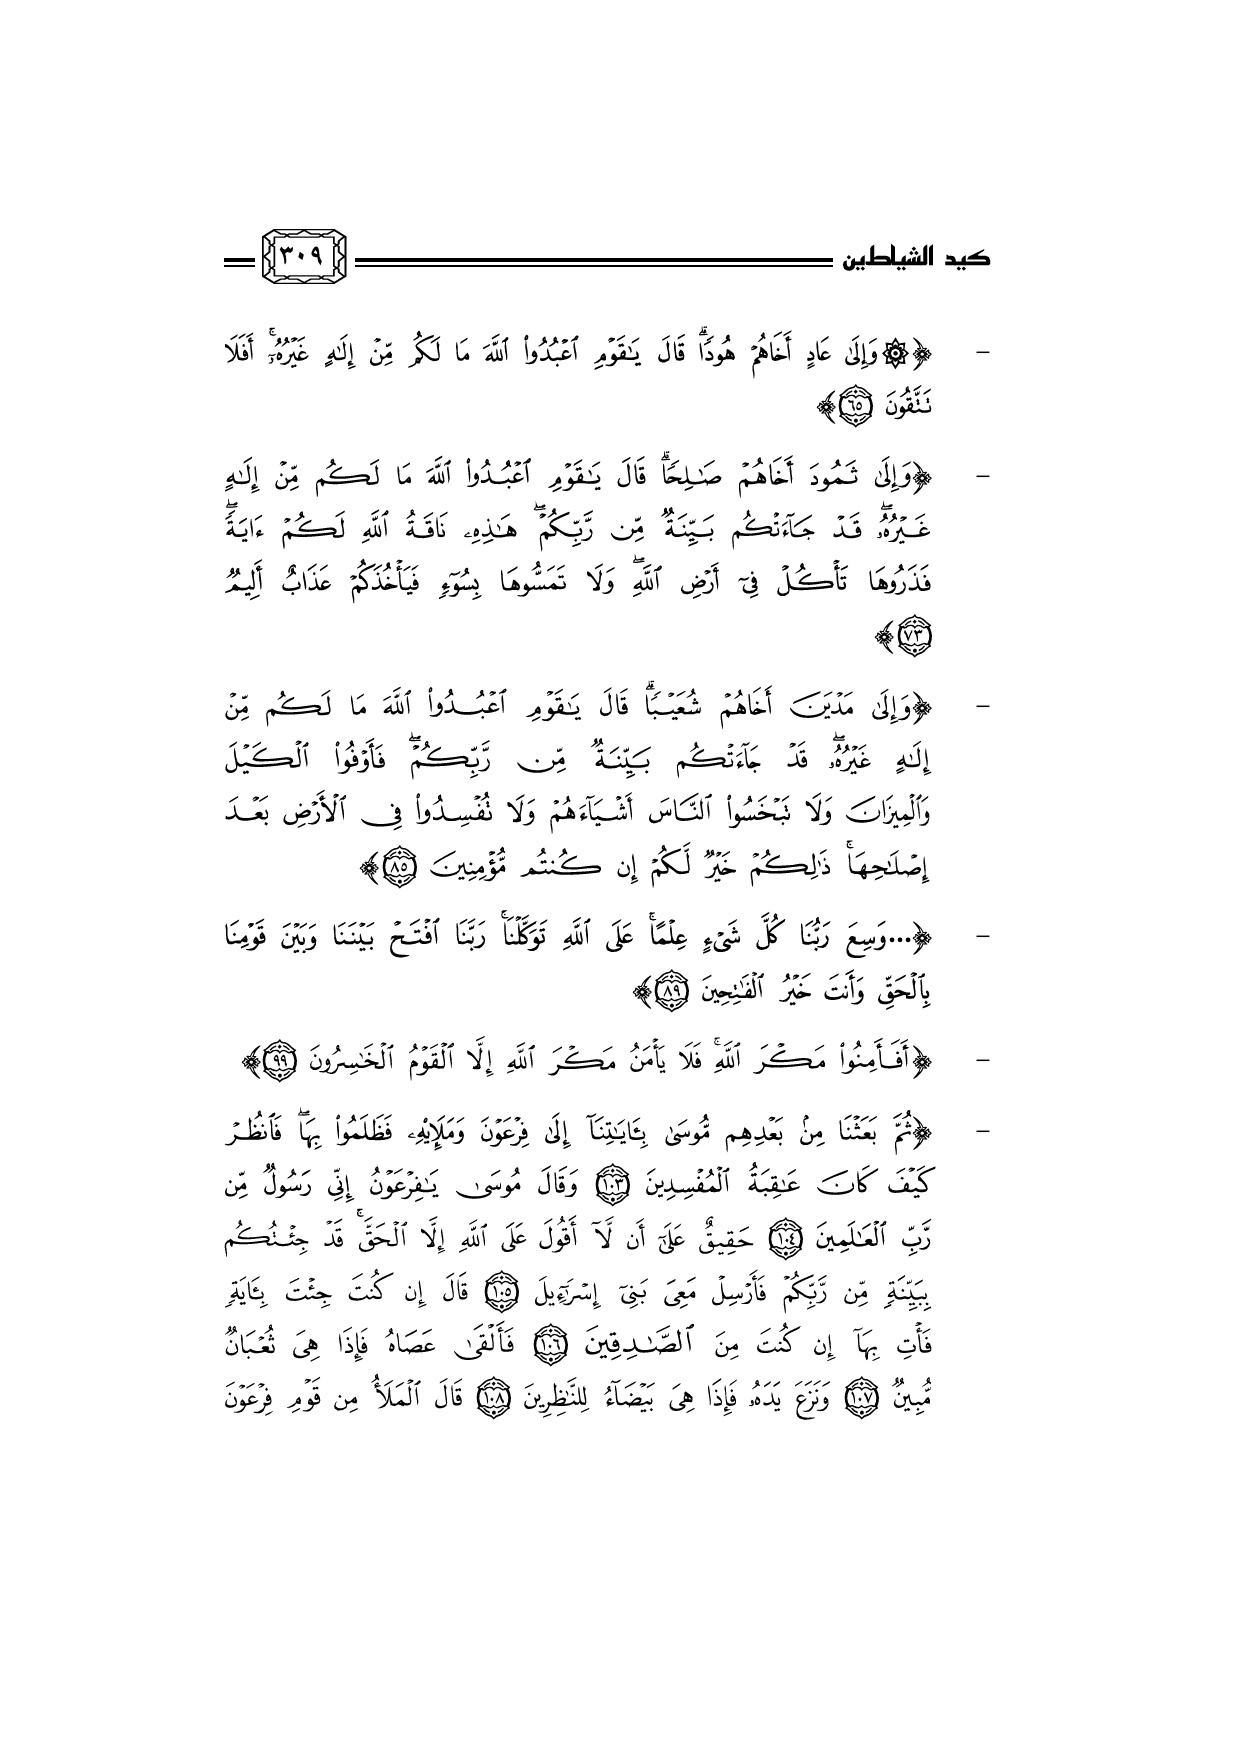 كيد الشياطين ٣٠٩
- ﴿۞وَإِلَىٰ عَادٍ أَخَاهُمۡ هُودٗاۚ قَالَ يَٰقَوۡمِ ٱعۡبُدُواْ ٱللَّهَ مَا لَكُم مِّنۡ إِلَٰهٍ غَيۡرُهُۥٓۚ أَفَلَا
تَتَّقُونَ ٦٥﴾
- ﴿وَإِلَىٰ ثَمُودَ أَخَاهُمۡ صَٰلِحٗاۚ قَالَ يَٰقَوۡمِ ٱعۡبُدُواْ ٱللَّهَ مَا لَكُم مِّنۡ إِلَٰهٍ
غَيۡرُهُۥۖ قَدۡ جَآءَتۡكُم بَيِّنَةٞ مِّن رَّبِّكُمۡۖ هَٰذِهِۦ نَاقَةُ ٱللَّهِ لَكُمۡ ءَايَةٗۖ
فَذَرُوهَا تَأۡكُلۡ فِيٓ أَرۡضِ ٱللَّهِۖ وَلَا تَمَسُّوهَا بِسُوٓءٖ فَيَأۡخُذَكُمۡ عَذَابٌ أَلِيمٞ
٧٣﴾
- ﴿وَإِلَىٰ مَدۡيَنَ أَخَاهُمۡ شُعَيۡبٗاۚ قَالَ يَٰقَوۡمِ ٱعۡبُدُواْ ٱللَّهَ مَا لَكُم مِّنۡ
إِلَٰهٍ غَيۡرُهُۥۖ قَدۡ جَآءَتۡكُم بَيِّنَةٞ مِّن رَّبِّكُمۡۖ فَأَوۡفُواْ ٱلۡكَيۡلَ
وَٱلۡمِيزَانَ وَلَا تَبۡخَسُواْ ٱلنَّاسَ أَشۡيَآءَهُمۡ وَلَا تُفۡسِدُواْ فِي ٱلۡأَرۡضِ بَعۡدَ
إِصۡلَٰحِهَاۚ ذَٰلِكُمۡ خَيۡرٞ لَّكُمۡ إِن كُنتُم مُّؤۡمِنِينَ ٨٥﴾
- ﴿...وَسِعَ رَبُّنَا كُلَّ شَيۡءٍ عِلۡمًاۚ عَلَى ٱللَّهِ تَوَكَّلۡنَاۚ رَبَّنَا ٱفۡتَحۡ بَيۡنَنَا وَبَيۡنَ قَوۡمِنَا
بِٱلۡحَقِّ وَأَنتَ خَيۡرُ ٱلۡفَٰتِحِينَ ٨٩﴾
- ﴿أَفَأَمِنُواْ مَكۡرَ ٱللَّهِۚ فَلَا يَأۡمَنُ مَكۡرَ ٱللَّهِ إِلَّا ٱلۡقَوۡمُ ٱلۡخَٰسِرُونَ ٩٩﴾
- ﴿ثُمَّ بَعَثۡنَا مِنۢ بَعۡدِهِم مُّوسَىٰ بِـَٔايَٰتِنَآ إِلَىٰ فِرۡعَوۡنَ وَمَلَإِيْهِۦ فَظَلَمُواْ بِهَاۖ فَٱنظُرۡ
كَيۡفَ كَانَ عَٰقِبَةُ ٱلۡمُفۡسِدِينَ ١٠٣ وَقَالَ مُوسَىٰ يَٰفِرۡعَوۡنُ إِنِّي رَسُولٞ مِّن
رَّبِّ ٱلۡعَٰلَمِينَ ١٠٤ حَقِيقٌ عَلَىٰٓ أَن لَّآ أَقُولَ عَلَى ٱللَّهِ إِلَّا ٱلۡحَقَّۚ قَدۡ جِئۡتُكُم
بِبَيِّنَةٖ مِّن رَّبِّكُمۡ فَأَرۡسِلۡ مَعِيَ بَنِيٓ إِسۡرَٰٓءِيلَ ١٠٥ قَالَ إِن كُنتَ جِئۡتَ بِـَٔايَةٖ
فَأۡتِ بِهَآ إِن كُنتَ مِنَ ٱلصَّٰدِقِينَ ١٠٦ فَأَلۡقَىٰ عَصَاهُ فَإِذَا هِيَ ثُعۡبَانٞ
مُّبِينٞ ١٠٧ وَنَزَعَ يَدَهُۥ فَإِذَا هِيَ بَيۡضَآءُ لِلنَّٰظِرِينَ ١٠٨ قَالَ ٱلۡمَلَأُ مِن قَوۡمِ فِرۡعَوۡنَ